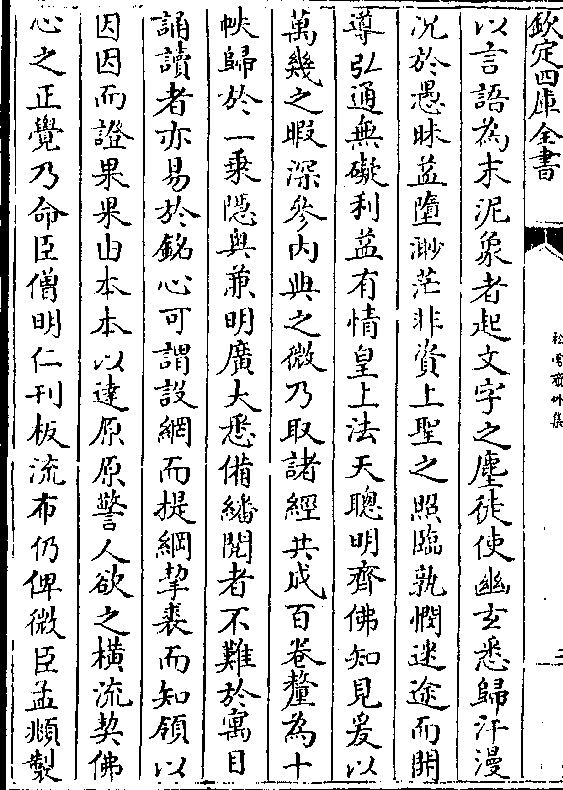 欽定四庫全書
松雪齋外集
二
以言語為末泥象者起文字之塵徒使幽玄悉歸汗漫
况於愚昧葢墮渺茫非資上聖之照臨孰憫迷途而開
導弘通無礙利益有情皇上法天聰明齊佛知見爰以
萬幾之暇深參内典之微乃取諸經共成百卷釐為十
帙歸於一乘隠與兼明廣大悉備繙閲者不難於寓目
誦讀者亦易於銘心可謂設網而提綱挈裘而知領以
因因而證果果由本本以達原原警人欲之橫流契佛
心之正覺乃命臣僧明仁刊板流布仍俾微臣孟頫製